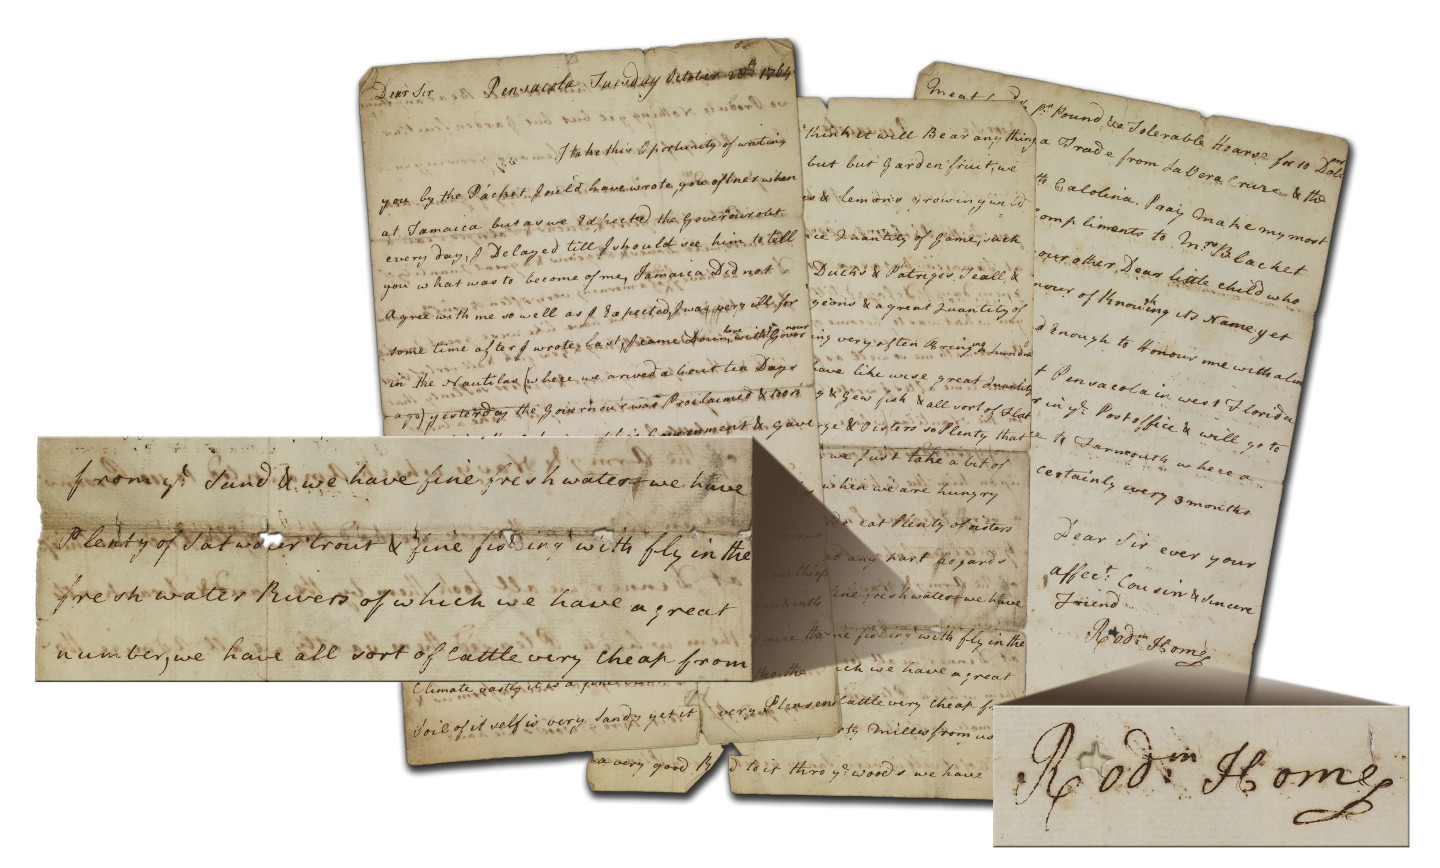 Dear Sir Pensacola Tuesday October 28th 1764
I take this Oportunity of writing
you by the Packet, I ould have wrote you oftner when
at Jamaica but as we Expected the Governour est
every day, I Delayed till I should see him to tell
you what was to become of me, Jamaica Did not
agree with me so well as I Expected, I was very ill for
some time after I wrote Last, I came Down here with Governour
in the Nautilas (where we arived about ten Days
ago) yesterday the Governour was Proclaimed & took
Government & Gave
Climate vastly it is a fine
Soil of it self is very Sandy yet it
think it will Bear any thing
but but Garden fruit, we
& lemons growing wild
Quantity of Game, such
Ducks & Patriges, Teall, &
geons & a great Quantity of
ing very often Bring us hundr
have like wise great Quantity
& Gew fish & all sort of flat
& Oisters so Plenty that
we Just take a bit of
when we are hungry
eat Plenty of oisters
any part hogards
fine fresh water we have
fishing with fly in the
which we have a great
very Pleasen Cattle very Cheap f
ty Milles from us
a very good R d to it thro ye woods we have
Meat pr Pound & a Tolerable Hoarse for 10 Dolrs
a Trade from La Vera Cruze & the
th Calolina. Pray Make my most
Compliments to Mrs Blacket
our other Dear little child who
nour of Knowing its Name yet
d Enough to Honour me with a lin
t Pensacola in west Florida
in ye Post office & will go to
to Farmouth where a
certainly every 3 months
Dear Sir ever your
affect Cousin & sincere
Friend
Rodm Home
from ye Sand & we have fine fresh water we have
Plenty of Sat water trout & fine fishing with fly in the
fresh water Rivers of which we have a great
number, we have all sort of Cattle very Cheap from
Rodm Home